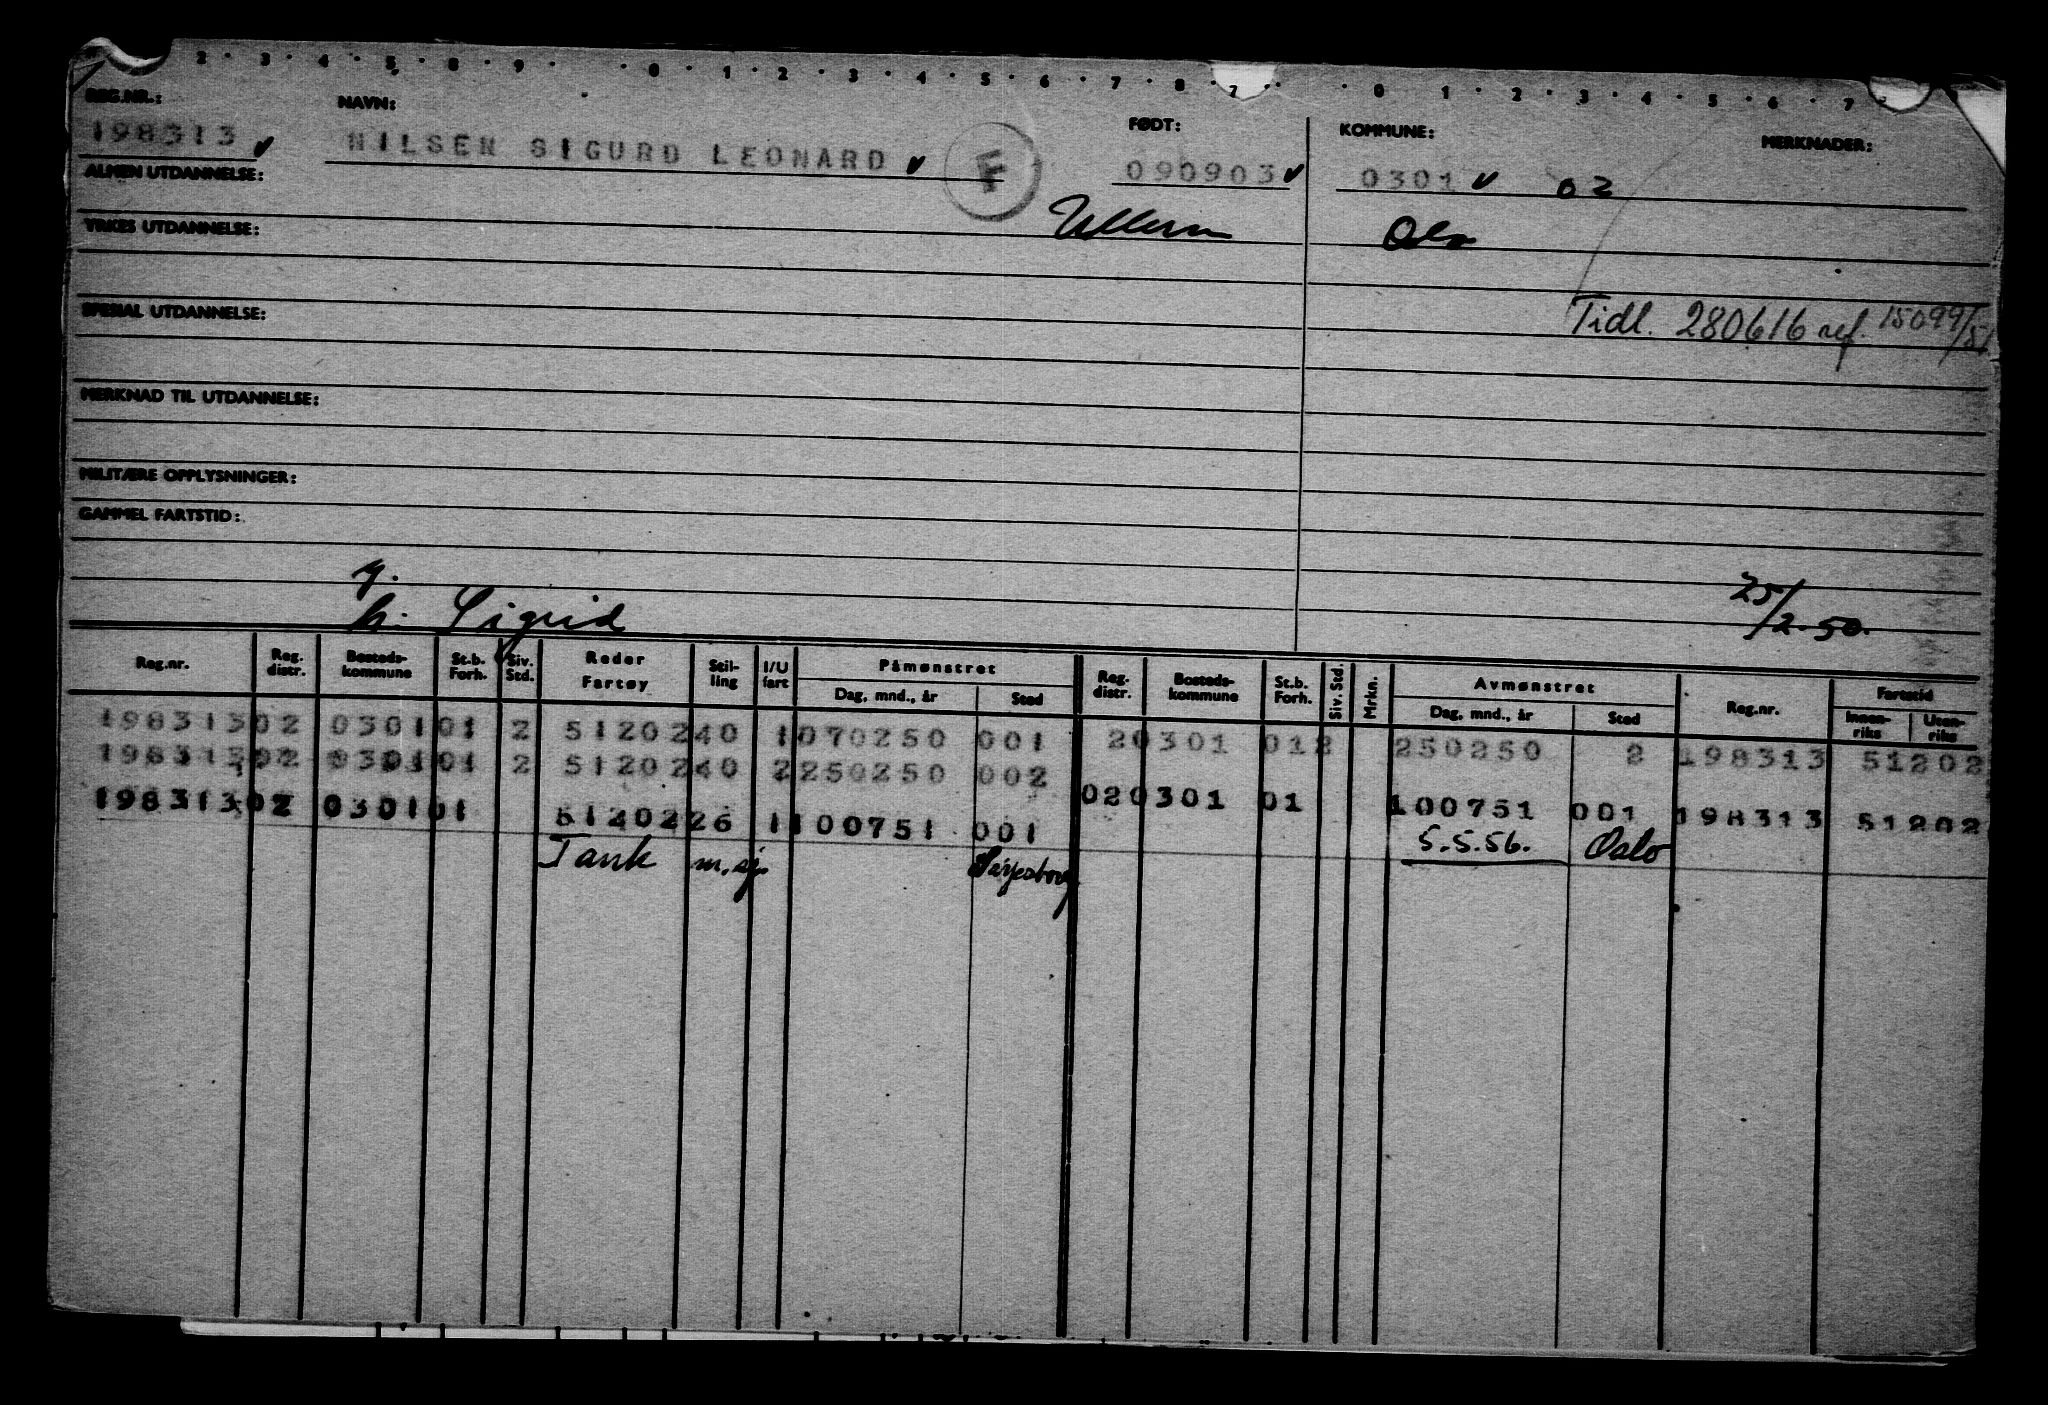 2 · 3 · 4 · 5 · 8 · 9 · · 0 · 1 · 2 · 3 · 4 · 5 · 6 · 7 · 8 · 7 · · 0 · 1 · 2 · 3 · 4 · 5 · 6 · 7
REG.NR.: NAVN: FØDT: KOMMUNE: MERKNADER:
198313 NILSEN SIGURD LEONARD F 090903 0301 02
ALMEN UTDANNELSE:
Ullern Oslo
YRKES UTDANNELSE:
SPESIAL UTDANNELSE:
Tidl. 280616 ref. 15099/51
MERKNAD TIL UTDANNELSE:
MILITÆRE OPPLYSNINGER:
GAMMEL FARTSTID:
g.
h. Sigrid 25/2-50.
Reg.nr. Reg. distr. Bosteds-kommune St.b. Forh. Siv. Std. Reder Fartøy Stil-ling I/U fart Påmønstret Dag, mnd., år Sted Reg. distr. Bosteds-kommune St.b. Forh. Siv. Std. Mrkn. Avmønstret Dag, mnd., år Sted Reg.nr. Fartstid Innen-riks Uten-riks
198313 02 0301 01 2 51202 40 1 070250 001 2 0301 01 2 250250 2 198313 51202
198313 02 0301 01 2 51202 40 2 250250 002
198313 02 0301 01 51202 26 1 100751 001 02 0301 01 100751 001 198313 51202
Tank m.sj. Sarpsborg 5.5.56. Oslo